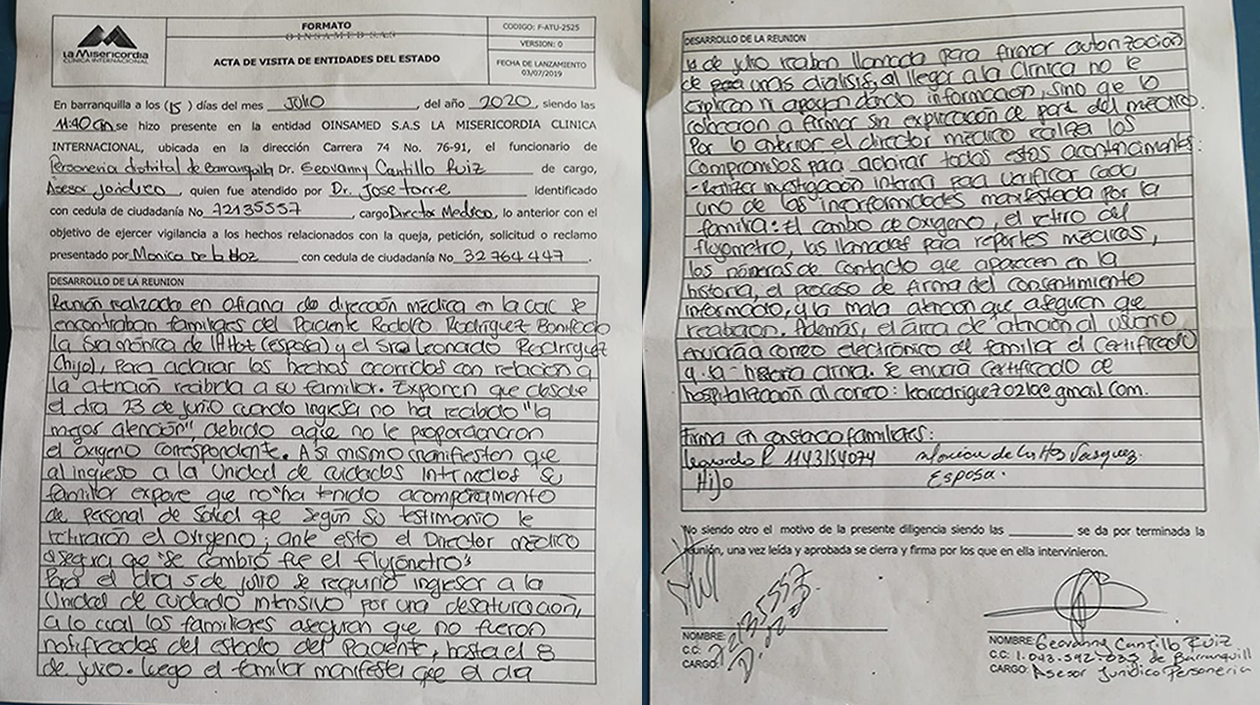 La Misericordia
CLINICA INTERNACIONAL
FORMATO
OINSAMED SAS
ACTA DE VISITA DE ENTIDADES DEL ESTADO
CODIGO: F-ATU-2525
VERSION: 0
FECHA DE LANZAMIENTO
03/07/2019
En barranquilla a los (15) días del mes Julio, del año 2020, siendo las
11:40 am se hizo presente en la entidad OINSAMED S.A.S LA MISERICORDIA CLINICA
INTERNACIONAL, ubicada en la dirección Carrera 74 No. 76-91, el funcionario de
Personeria distrital de Barranquilla Dr. Geovanny Cantillo Ruiz de cargo,
Asesor Jurídico, quien fue atendido por Dr. Jose torre Identificado
con cedula de ciudadanía No 72135557, cargo Director Medico, lo anterior con el
objetivo de ejercer vigilancia a los hechos relacionados con la queja, petición, solicitud o reclamo
presentado por Monica De la Hoz con cedula de ciudadanía No 32764447.
DESARROLLO DE LA REUNION
Reunión realizada en oficina de dirección médica en la cual se
encontraban familiares del Paciente Rodolfo Rodriguez Bonifacio
la Sra mónica de (esposa) y el Sr Leonardo Rodriguez
(hijo), para aclarar los hechos ocurridos con relación a
la atención recibida a su familiar. Exponen que desde
el día 23 de junio cuando ingresa no ha recibido "la
mejor atención", debido a que no le proporcionaron
el oxígeno correspondente. Asi mismo manifiestan que
al ingreso a la Unidad de cuidados Intermedios su
familiar expone que no "ha tenido acompañamiento
de Personal de Salud que según su testimonio le
retiraron el oxígeno; ante esto el Director médico
asegura que "se cambió fue el flujómetro"
Para el día 5 de julio se requirió ingresar a la
Unidad de cuidado intensivo por una desaturación,
a lo cual los familiares aseguran que no fueron
notificados del estado del Paciente, hasta el 8
de julio. luego el familiar manifiesta que el día
DESARROLLO DE LA REUNION
de julio reciben llamada para firmar autorización
de para unas dialisis, al llegar a la Clínica no le
explican ni apoyan dando información, sino que lo
colocaron a firmar sin explicación de parte del médico.
Por lo anterior el director médico realiza los
compromisos para aclarar todos estos acontecimientos:
- Realizar investigación interna para verificar cada
uno de las inconformidades manifestada por la
familia: El cambio de oxígeno, el retiro del
flujometro, las llamadas para reportes médicos,
los números de contacto que aparecen en la
historia, el proceso de firma del consentimiento
informado, y la mala atención que aseguran que
recibieron. Además, el área de atención al usuario
enviará a correo electrónico del familiar el Certificado
y la historia clínica. se enviará certificado de
hospitalización al correo: leorodriguez0210@gmail.com.
Firma en constancia familiares:
Leonardo R 1143154074 Monica de la Hoz Vasquez.
Hijo Esposa.
No siendo otro el motivo de la presente diligencia siendo las ________ se da por terminada la
reunión, una vez leída y aprobada se cierra y firma por los que en ella intervinieron.
NOMBRE:
C.C: 72135557
CARGO:
NOMBRE: Geovanny Cantillo Ruiz
C.C: 1.042.592.033 de Barranquill
CARGO: Asesor Jurídico Personeria